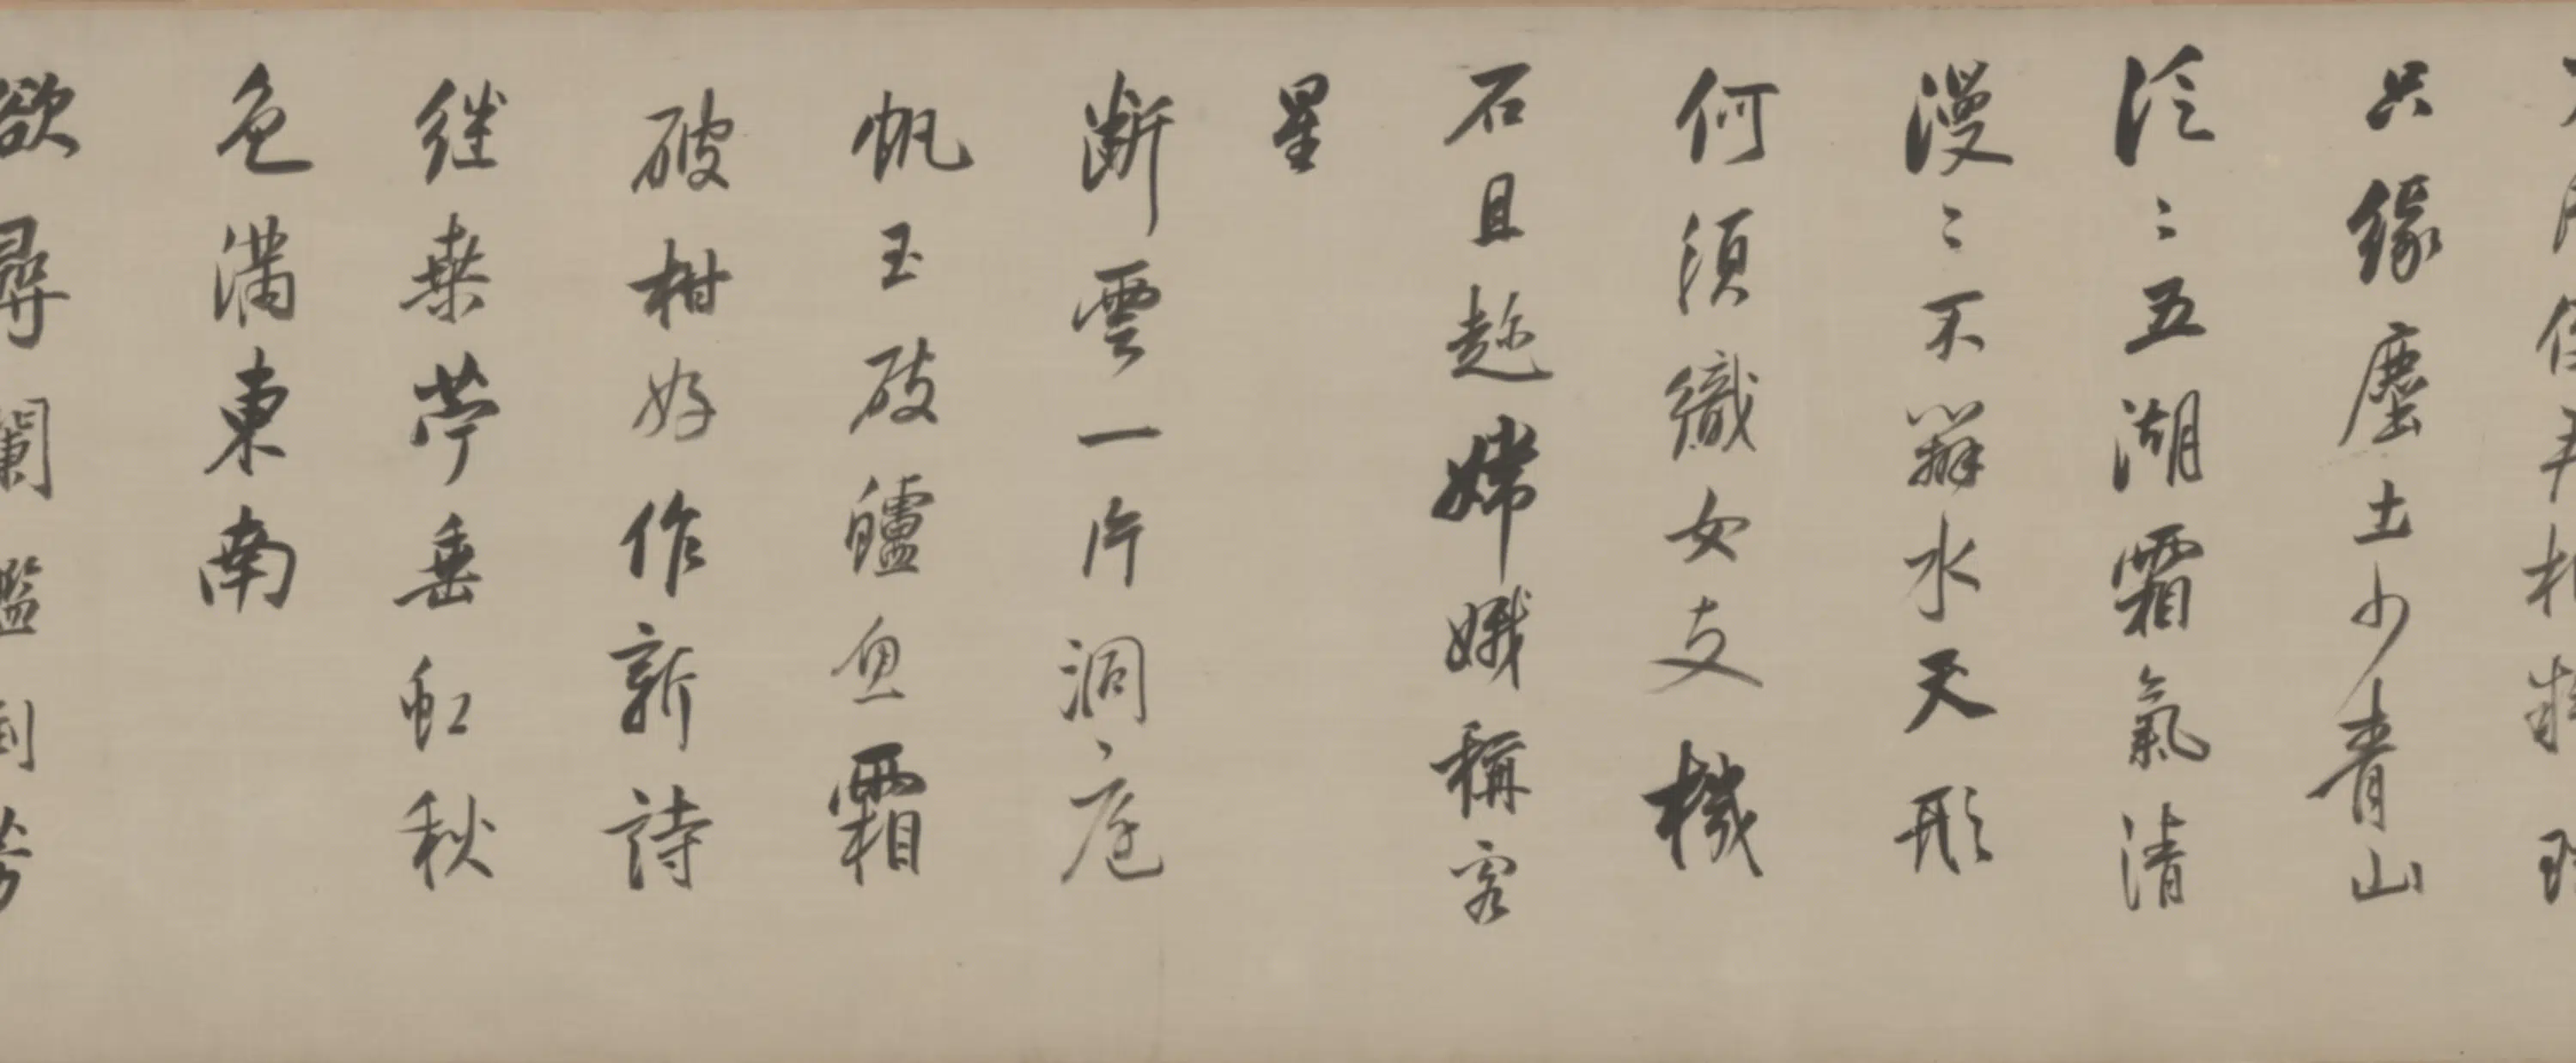 只緣塵土少青山
泛〻五湖霜氣清
漫〻不辨水天形
何須織女支機
石且趂嫦娥稱客
星
断雲一片洞庭
帆玉破鱸魚霜
破柑好作新詩
継桑苧垂虹秋
色滿東南
欲尋闌檻倒芳